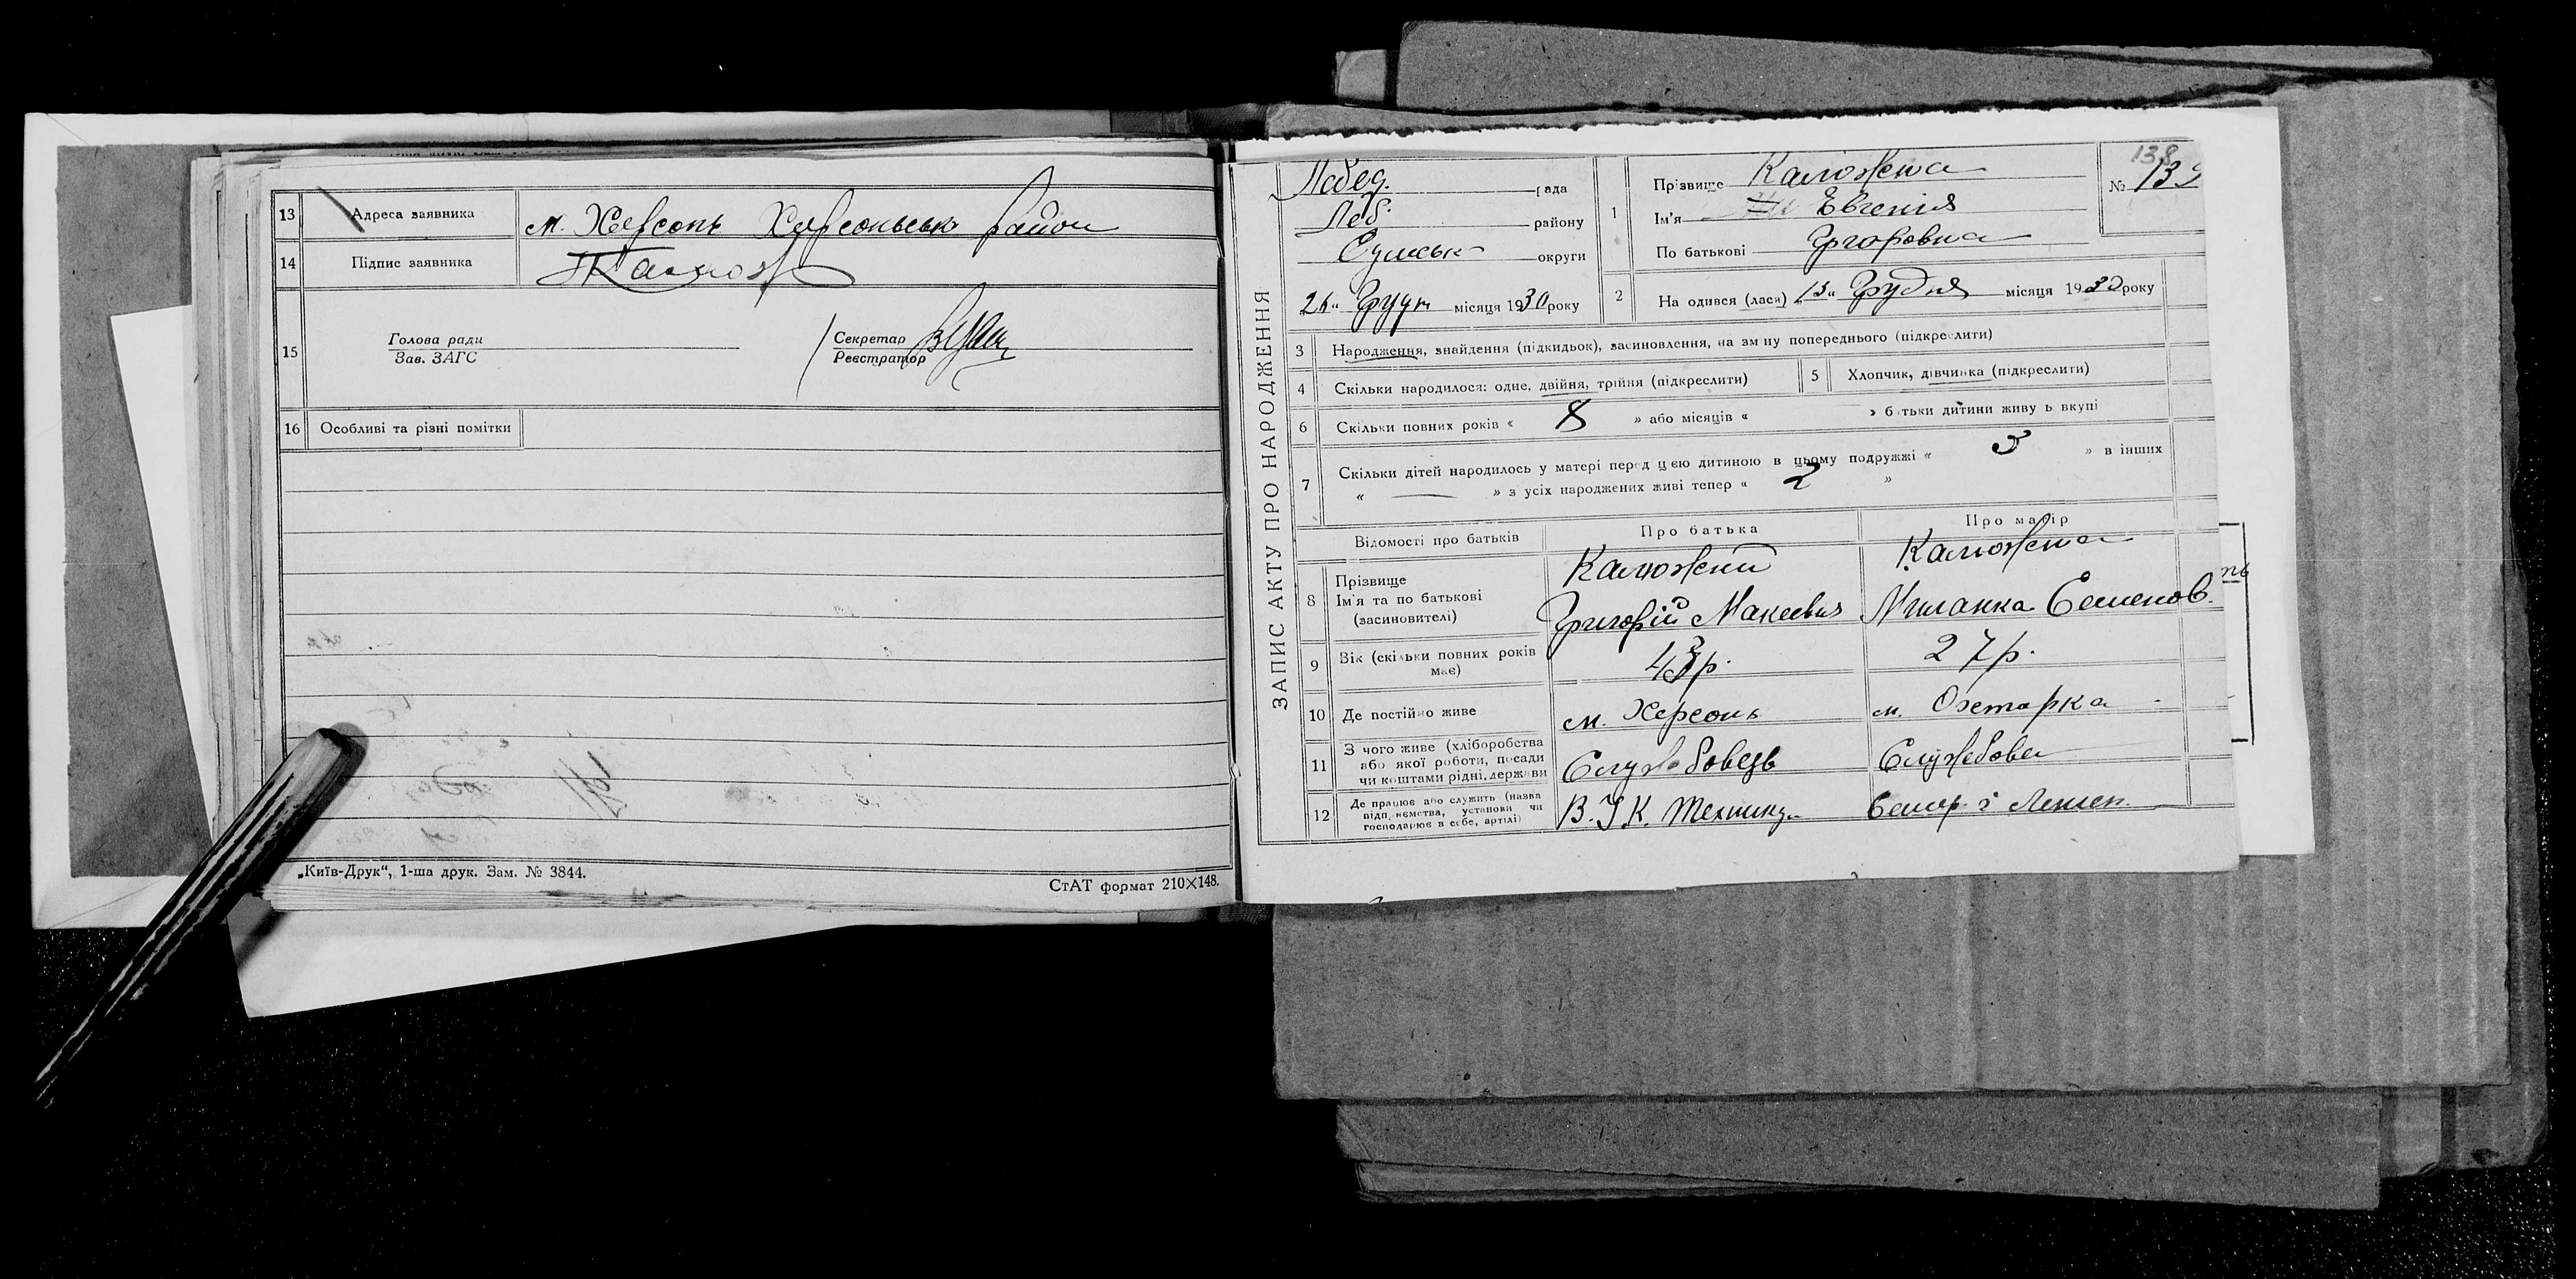 13 Адреса заявника м. Херсонь Херсонськ район
14 Підпис заявника
15 Голова ради
Зав. ЗАГС
Секретар
Реєстратор
16 Особливі та різні помітки
„Київ-Друк“, 1-ша друк. Зам. № 3844.
СтАТ формат 210×148.
ЗАПИС АКТУ ПРО НАРОДЖЕННЯ
Лебед. рада
Леб. району
Сумськ округи
місяця 1930 року
138
№ 139
1 Прізвище Калюжна
Ім'я Євгенія
По батькові Григоровна
2 На одився (лася) „13“ Грудня місяця 1930 року
3 Народження, знайдення (підкидьок), засиновлення, на зміну попереднього (підкреслити)
4 Скільки народилося: одне, двійня, трійня (підкреслити)
5 Хлопчик, дівчинка (підкреслити)
6 Скільки повних років « 8 » або місяців « » батьки дитини живуть вкупі
7 Скільки дітей народилось у матері перед цією дитиною в цьому подружжі « 3 » в інших
« — » з усіх народжених живі тепер « 2 »
Відомості про батьків Про батька Про матір
8 Прізвище
Ім'я та по батькові
(засиновителі)
Калюжний
Григорій
Калюжна
Семенов.
9 Вік (скільки повних років
має)
43 р.
27 р.
10 Де постійно живе м. Херсонь м. Охтарка
11 З чого живе (хліборобства
або якої роботи, посади
чи коштами рідні, держави
Службовець
Службова
12 Де працює або служить (назва
підприємства, установи чи
господарює в себе, артілі)